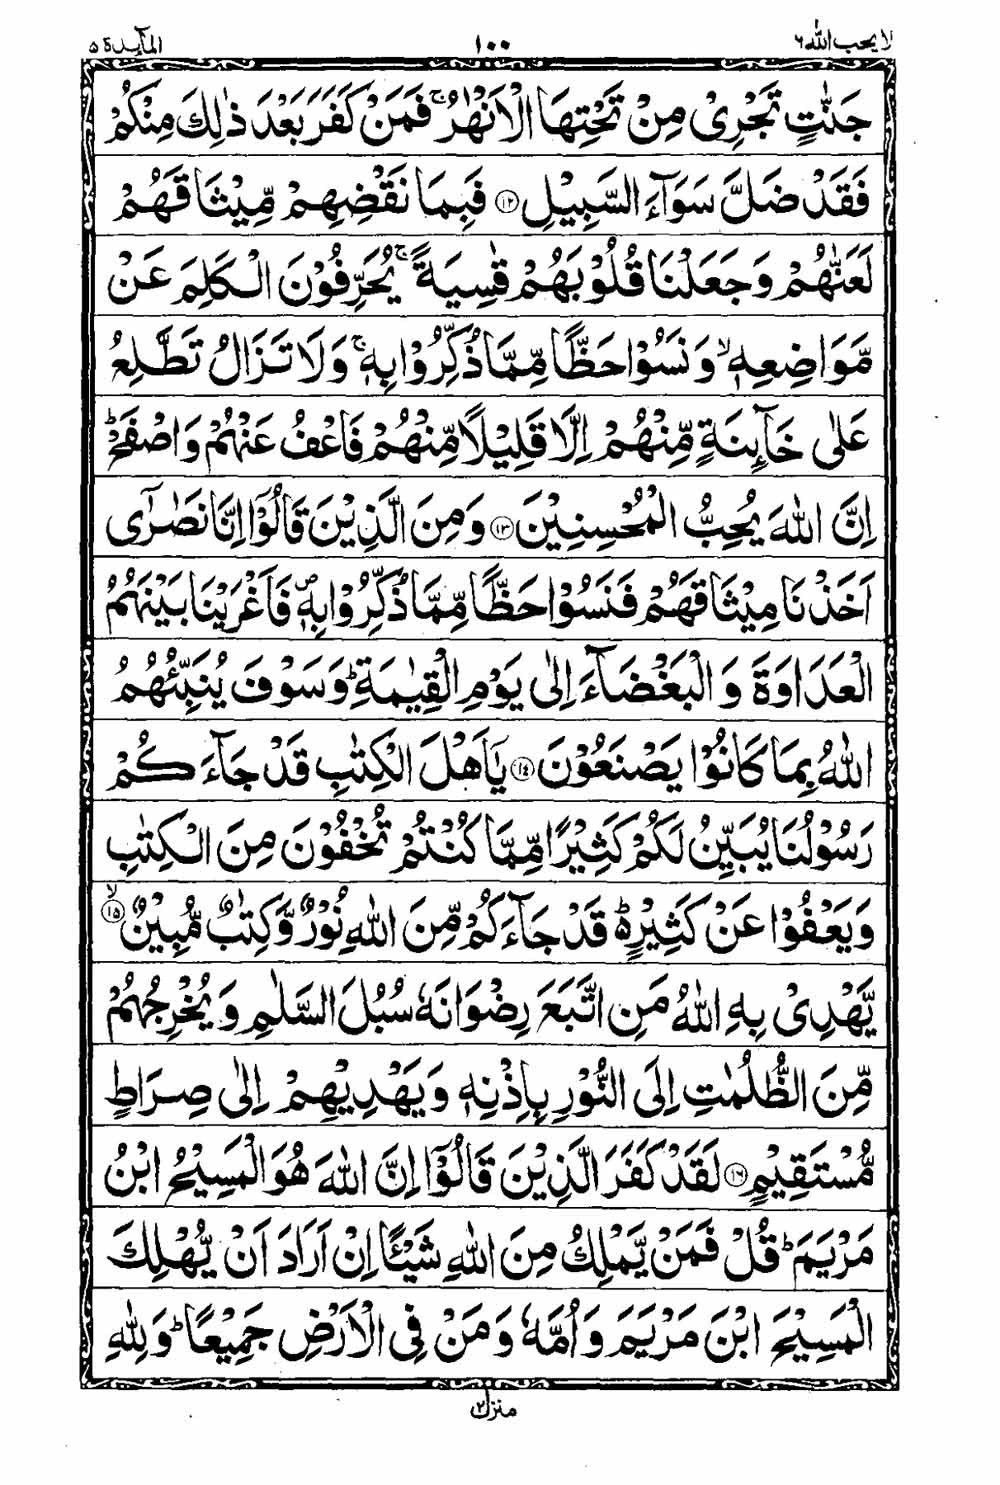 لا يحب الله ٦ ١٠٠ المآىِٕدة ٥
جَنّٰتٍ تَجْرِیْ مِنْ تَحْتِهَا الْاَنْهٰرُ ۚ فَمَنْ كَفَرَ بَعْدَ ذٰلِكَ مِنْكُمْ
فَقَدْ ضَلَّ سَوَآءَ السَّبِیْلِ ﴿١٢﴾ فَبِمَا نَقْضِهِمْ مِّیْثَاقَهُمْ
لَعَنّٰهُمْ وَ جَعَلْنَا قُلُوْبَهُمْ قٰسِیَةً ۚ یُحَرِّفُوْنَ الْكَلِمَ عَنْ
مَّوَاضِعِهٖ ۙ وَ نَسُوْا حَظًّا مِّمَّا ذُكِّرُوْا بِهٖ ۚ وَ لَا تَزَالُ تَطَّلِعُ
عَلٰی خَآىِٕنَةٍ مِّنْهُمْ اِلَّا قَلِیْلًا مِّنْهُمْ فَاعْفُ عَنْهُمْ وَ اصْفَحْ ؕ
اِنَّ اللّٰهَ یُحِبُّ الْمُحْسِنِیْنَ ﴿١٣﴾ وَ مِنَ الَّذِیْنَ قَالُوْۤا اِنَّا نَصٰرٰۤی
اَخَذْنَا مِیْثَاقَهُمْ فَنَسُوْا حَظًّا مِّمَّا ذُكِّرُوْا بِهٖ ۪ فَاَغْرَیْنَا بَیْنَهُمُ
الْعَدَاوَةَ وَ الْبَغْضَآءَ اِلٰی یَوْمِ الْقِیٰمَةِ ؕ وَ سَوْفَ یُنَبِّئُهُمُ
اللّٰهُ بِمَا كَانُوْا یَصْنَعُوْنَ ﴿١٤﴾ یٰۤاَهْلَ الْكِتٰبِ قَدْ جَآءَكُمْ
رَسُوْلُنَا یُبَیِّنُ لَكُمْ كَثِیْرًا مِّمَّا كُنْتُمْ تُخْفُوْنَ مِنَ الْكِتٰبِ
وَ یَعْفُوْا عَنْ كَثِیْرٍ ؕ۬ قَدْ جَآءَكُمْ مِّنَ اللّٰهِ نُوْرٌ وَّ كِتٰبٌ مُّبِیْنٌ ﴿١٥﴾ۙ
یَّهْدِیْ بِهِ اللّٰهُ مَنِ اتَّبَعَ رِضْوَانَهٗ سُبُلَ السَّلٰمِ وَ یُخْرِجُهُمْ
مِّنَ الظُّلُمٰتِ اِلَی النُّوْرِ بِاِذْنِهٖ وَ یَهْدِیْهِمْ اِلٰی صِرَاطٍ
مُّسْتَقِیْمٍ ﴿١٦﴾ لَقَدْ كَفَرَ الَّذِیْنَ قَالُوْۤا اِنَّ اللّٰهَ هُوَ الْمَسِیْحُ ابْنُ
مَرْیَمَ ؕ قُلْ فَمَنْ یَّمْلِكُ مِنَ اللّٰهِ شَیْـًٔا اِنْ اَرَادَ اَنْ یُّهْلِكَ
الْمَسِیْحَ ابْنَ مَرْیَمَ وَ اُمَّهٗ وَ مَنْ فِی الْاَرْضِ جَمِیْعًا ؕ وَ لِلّٰهِ
منزل ٢